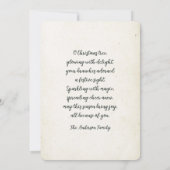 O Christmas tree,
glowing with delight,
your branches adorned
a festive sight.
Sparkling with magic,
spreading cheer anew,
may this season bring joy,
all because of you.
The Anderson Family